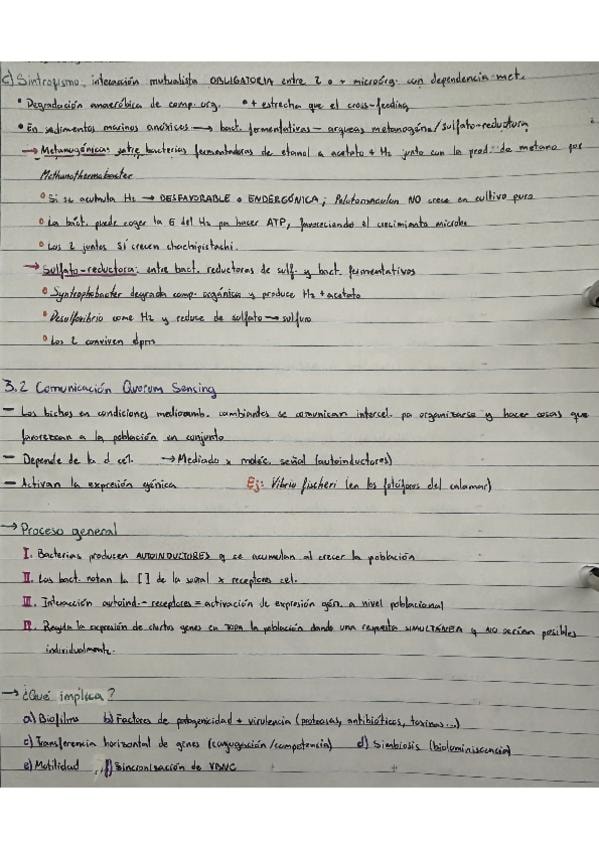 c) Sintrofismo: interacción mutualista OBLIGATORIA entre 2 o + microorg. con dependencia met.
• Degradación anaeróbica de comp. org. • + estrecha que el cross-feeding
• En sedimentos marinos anóxicos → bact. fermentativas – arqueas metanogéna/sulfato-reductora
→ Metanogénica: entre bacterias fermentadoras de etanol a acetato + H2 junto con la prod. de metano por
Methanothermobacter
• Si se acumula H2 → DESFAVORABLE o ENDERGÓNICA; Pelotomaculum NO crece en cultivo puro
• La bact. puede coger la E del H2 pa hacer ATP, favoreciendo el crecimiento microbi
• Los 2 juntos SÍ crecen chachipistachi.
→ Sulfato-reductora: entre bact. reductoras de sulf. y bact. fermentativas
• Syntrophobacter degrada comp. orgánicos y produce H2 + acetato
• Desulfovibrio come H2 y reduce de sulfato → sulfuro
• Los 2 conviven dpm
3.2 Comunicación Quorum Sensing
– Los bichos en condiciones medioamb. cambiantes se comunican intercel. pa organizarse y hacer cosas que
favorezcan a la población en conjunto
– Depende de la d cel. → Mediado x moléc. señal (autoinductores)
– Activan la expresión génica Ej: Vibrio fischeri (en los fotóforos del calamar)
→ Proceso general
I. Bacterias producen AUTOINDUCTORES q se acumulan al crecer la población
II. Las bact. notan la [ ] de la señal x receptores cel.
III. Interacción autoind. - receptores = activación de expresión gén. a nivel poblacional
IV. Regula la expresión de ciertos genes en TODA la población dando una respuesta SIMULTÁNEA q NO serían posibles
individualmente.
→ ¿Qué implica?
a) Biofilms b) Factores de patogenicidad + virulencia (proteasas, antibióticos, toxinas...)
c) Transferencia horizontal de genes (conjugación/competencia) d) Simbiosis (bioluminiscencia)
e) Motilidad f) Sincronización de VBNC